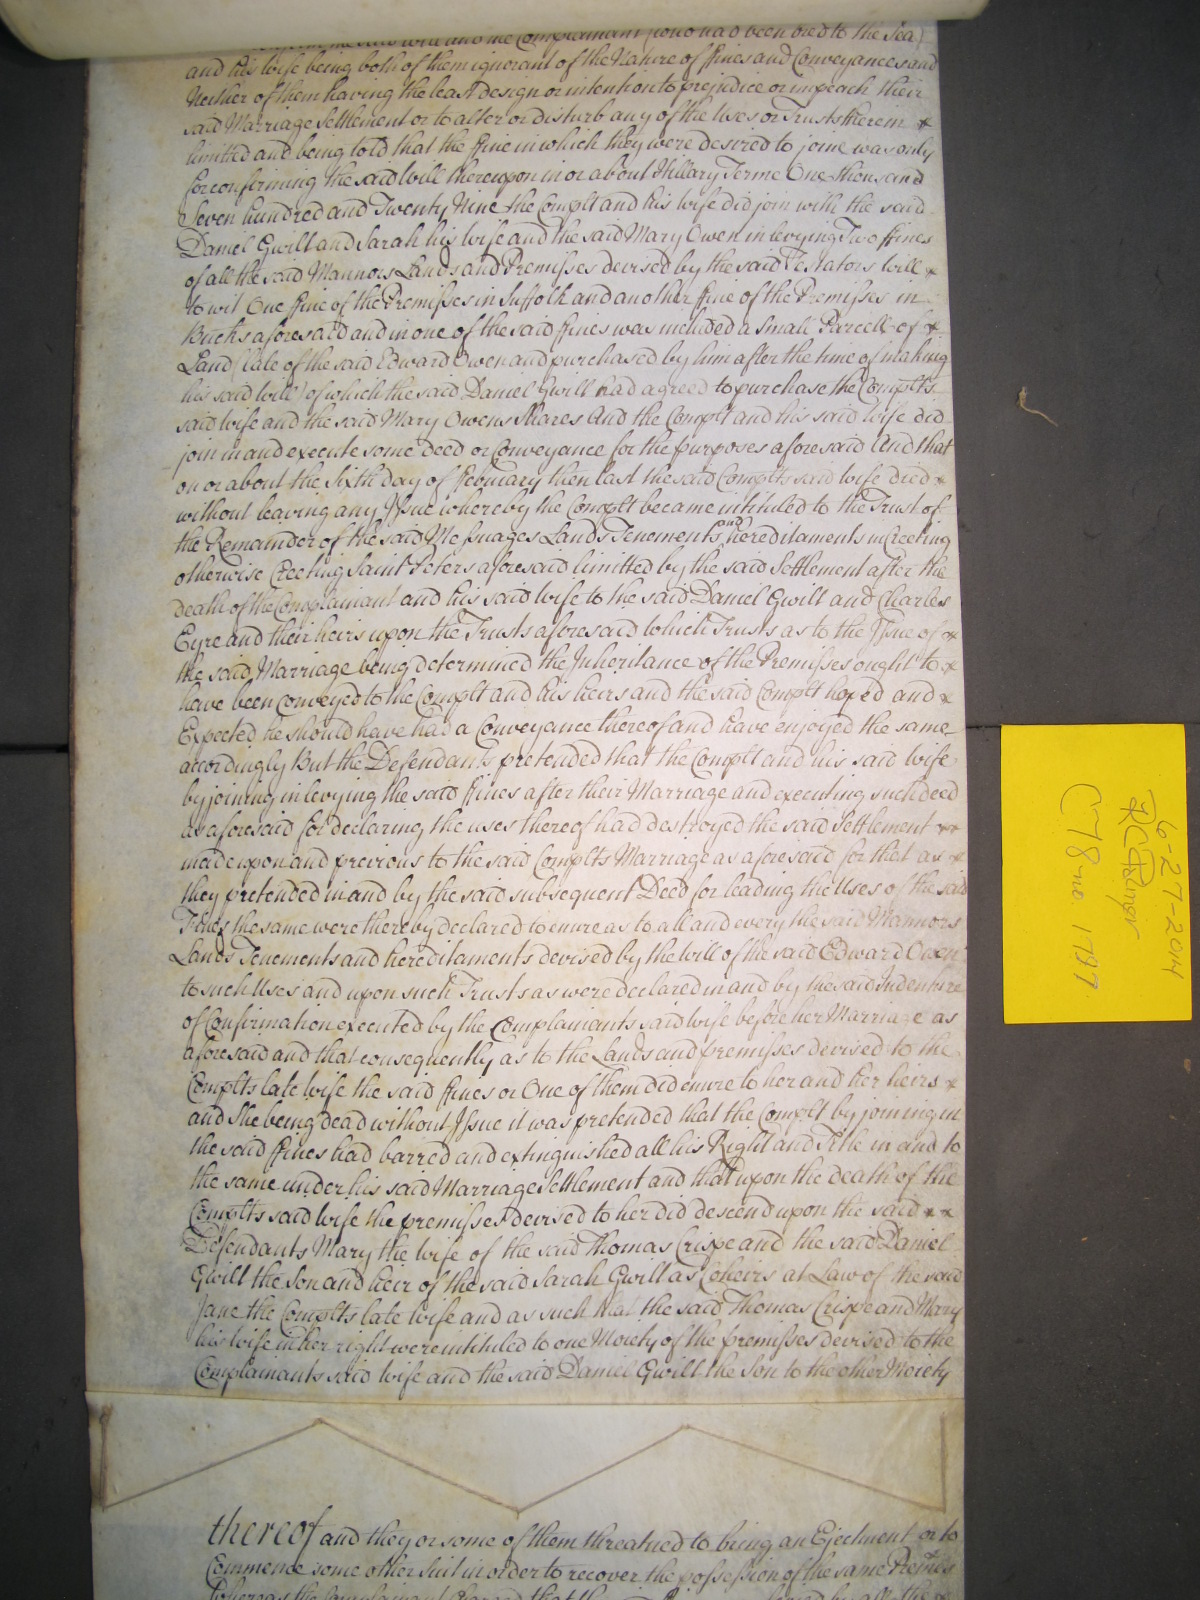 the said will and the Complainant (who had been bred to the Sea)
and his wife being both of them ignorant of the Nature of ffines and Conveyances and
Neither of them having the least design or intention to prejudice or impeach their
said Marriage Settlement or to alter or disturb any of the Uses or Trusts therein
limitted and being told that the ffine in which they were desired to joine was only
for confirming the said Will thereupon in or about Hillary Terme One thousand
Seven hundred and Twenty Nine the Complt and his wife did join with the said
Daniel Gwilt and Sarah his wife and the said Mary Owen in levying Two ffines
of all the said Mannors Lands and Premisses devised by the said Testators Will
to wit One ffine of the Premisses in Suffolk and another ffine of the Premisses in
Bucks aforesaid and in one of the said ffines was included a small Parcell of
Land (late of the said Edward Owen and purchased by him after the time of making
his said will) of which the said Daniel Gwilt had agreed to purchase the Complts
said wife and the said Mary Owens Shares And the Complt and his said Wife did
join in and execute some deed or Conveyance for the purposes aforesaid And that
on or about the Sixth day of ffebruary then last the said Complts said wife died
without leaving any Issue whereby the Complt became intituled to the Trust of
the Remainder of the said Messuages Lands Tenements and hereditaments in Creeting
otherwise Creeting Saint Peters aforesaid limitted by the said Settlement after the
death of the Complainant and his said wife to the said Daniel Gwilt and Charles
Eyre and their heirs upon the Trusts aforesaid which Trusts as to the Issue of
the said Marriage being determined the Inheritance of the Premisses ought to
have been conveyed to the Complt and his heirs and the said Complt hoped and
Expected he should have had a Conveyance thereof and have enjoyed the same
accordingly But the Defendants pretended that the Complt and his said wife
by joining in levying the said ffines after their Marriage and executing such deed
as aforesaid for declaring the uses thereof had destroyed the said Settlement
made upon and previous to the said Complts Marriage as aforesaid for that as
they pretended in and by the said subsequent Deed for leading the Uses of the said
Fines the same were thereby declared to enure as to all and every the said Mannors
Lands Tenements and hereditaments devised by the will of the said Edward Owen
to such Uses and upon such Trusts as were declared in and by the said Indenture
of Confirmation executed by the Complainants said wife before her Marriage as
aforesaid and that consequently as to the Lands and premisses devised to the
Complts late wife the said ffines or One of them did enure to her and her heirs
and She being dead without Issue it was pretended that the Complt by joining in
the said ffines had barred and extinguished all his Right and Title in and to
the same under his said Marriage Settlement and that upon the death of the
Complts said wife the premisses devised to her did descend upon the said
Defendants Mary the wife of the said Thomas Crispe and the said Daniel
Gwilt the Son and heir of the said Sarah Gwilt as Coheirs at Law of the said
Jane the Complts late wife and as such that the said Thomas Crispe and Mary
his wife in her right were intituled to one Moiety of the premisses devised to the
Complainants said wife and the said Daniel Gwilt the Son to the other Moiety
thereof and they or some of them threatned to bring an Ejectment or to
Commence some other Suit in order to recover the possession of the same Premes
Whereas the Complainant
6-27-2014
C78 no 1797